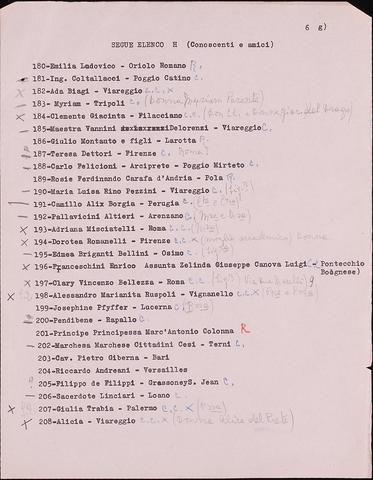 6 g)
SEGUE ELENCO H (Conoscenti e amici)
180-Emilia Lodovico - Oriolo Romano R.
181-Ing. Coltallacci - Poggio Catino C.
X 182-Ada Biagi - Viareggio C.C. X
183- Myriam - Tripoli C. (Donna Myriam
X 184-Clemente Giacinta - Filacciano C.C. (Don Cl. e Donna Giac. del Drago)
185-Maestra Vannini Delorenzi - Viareggio C.
186-Giulio Montauto e figli - Larotta R.
187-Teresa Dettori - Firenze C. Roma?
188-Carlo Felicioni - Arciprete - Poggio Mirteto C.
189-Rosie Ferdinando Carafa d'Andria - Pola R.
190-Maria Luisa Rino Pezzini - Viareggio C. (fig?)
191-Camillo Alix Borgia - Perugia C.
192-Pallavicini Altieri - Arenzano C.
X 193-Adriana Misciatelli - Roma C.C.
X 194-Dorotea Romanelli - Firenze C.C. X
195-Edmea Briganti Bellini - Osimo C.
X 196-Franceschini Enrico Assunta Zelinda Giuseppe Canova Luigi C - Pontecchio
Bolognese)
X 197-Clary Vincenzo Bellezza - Roma C.C.
X 198-Alessandro Marianita Ruspoli - Vignanello C.C. X
199-Josephine Pfyffer - Lucerna C.
200-Pendibene - Rapallo C.
201-Principe Principessa Marc'Antonio Colonna R
202-Marchesa Marchese Cittadini Cesi - Terni C.
203-Cav. Pietro Giberna - Bari
204-Riccardo Andreani - Versailles
205-Filippo de Filippi - GrassoneyS. Jean C.
206-Sacerdote Linciari - Loano
X 207-Giulia Trabia - Palermo C.C. X
X 208-Alicia - Viareggio C.C. X (Donna Alice del Prete)